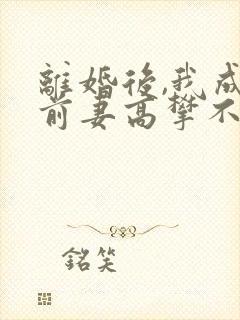 離婚後,我成
前妻高攀不
銘笑